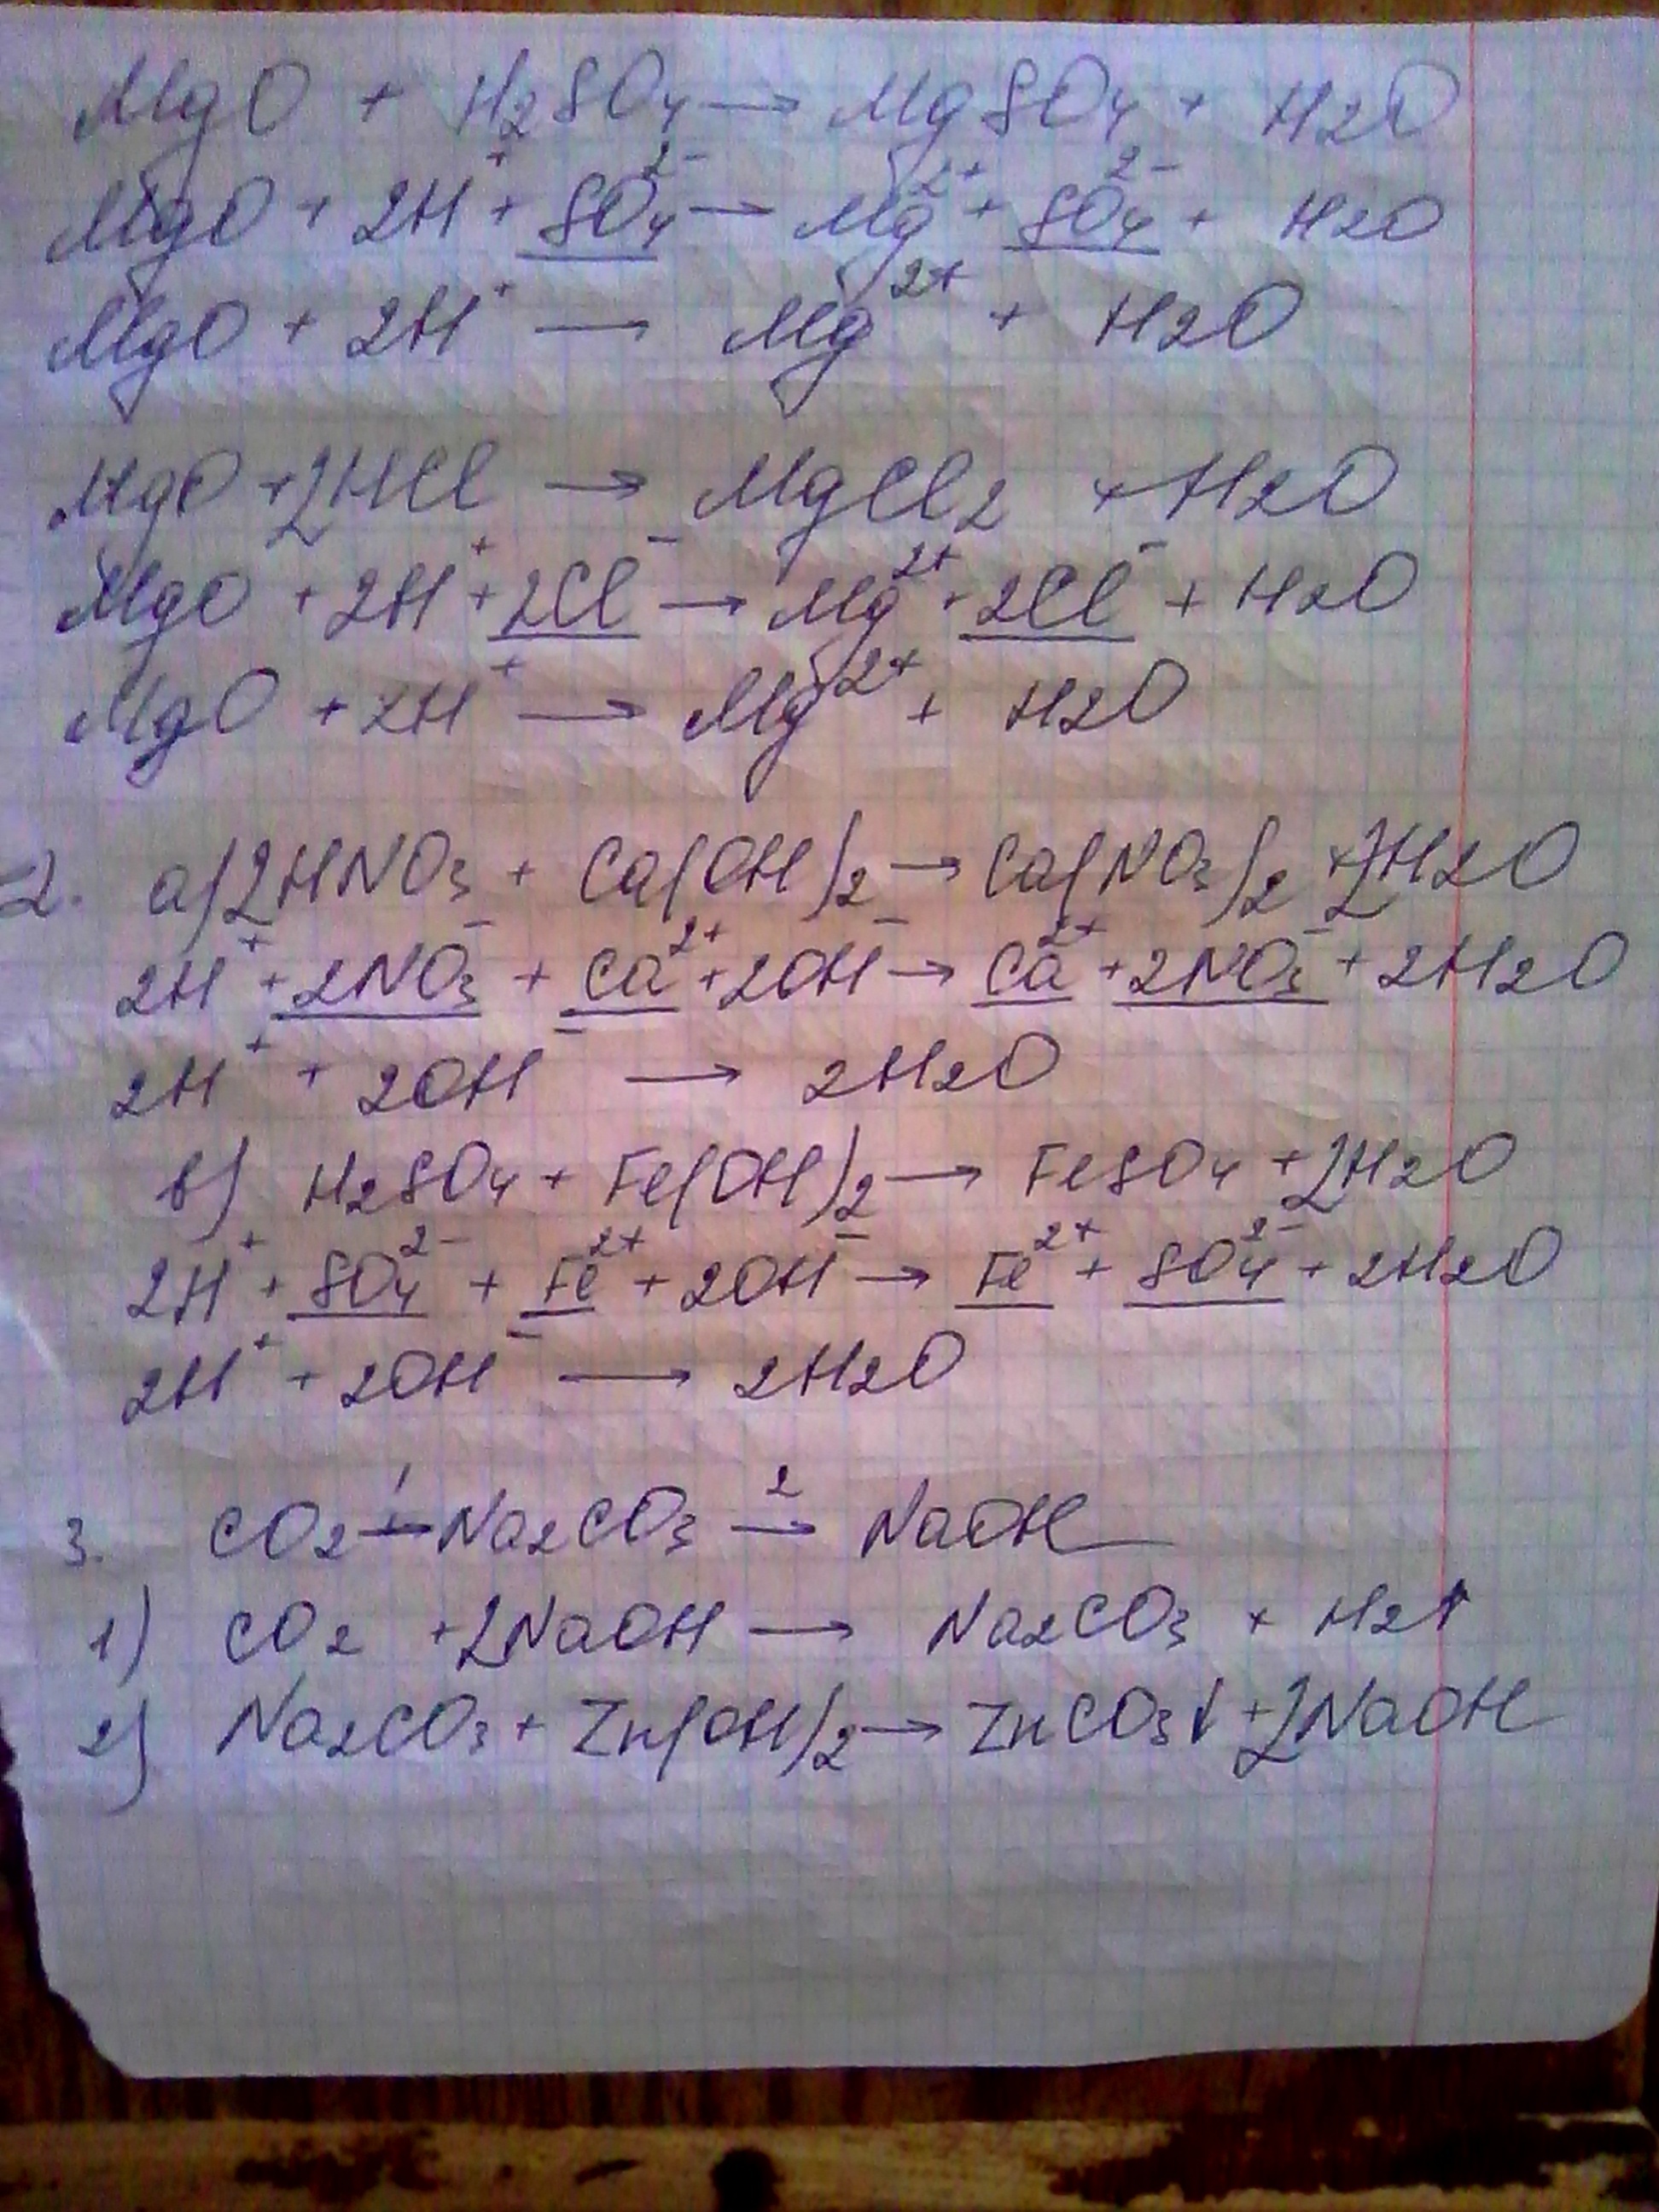 MgO + H2SO4 → MgSO4 + H2O
MgO + 2H⁺ + SO4²⁻ → Mg²⁺ + SO4²⁻ + H2O
MgO + 2H⁺ → Mg²⁺ + H2O
MgO + 2HCl → MgCl2 + H2O
MgO + 2H⁺ + 2Cl⁻ → Mg²⁺ + 2Cl⁻ + H2O
MgO + 2H⁺ → Mg²⁺ + H2O
2. а) 2HNO3 + Ca(OH)2 → Ca(NO3)2 + 2H2O
2H⁺ + 2NO3⁻ + Ca²⁺ + 2OH⁻ → Ca²⁺ + 2NO3⁻ + 2H2O
2H⁺ + 2OH⁻ → 2H2O
в) H2SO4 + Fe(OH)2 → FeSO4 + 2H2O
2H⁺ + SO4²⁻ + Fe²⁺ + 2OH⁻ → Fe²⁺ + SO4²⁻ + 2H2O
2H⁺ + 2OH⁻ → 2H2O
3. CO2 →¹ Na2CO3 →² NaOH
1) CO2 + 2NaOH → Na2CO3 + H2↑
2) Na2CO3 + Zn(OH)2 → ZnCO3↓ + 2NaOH